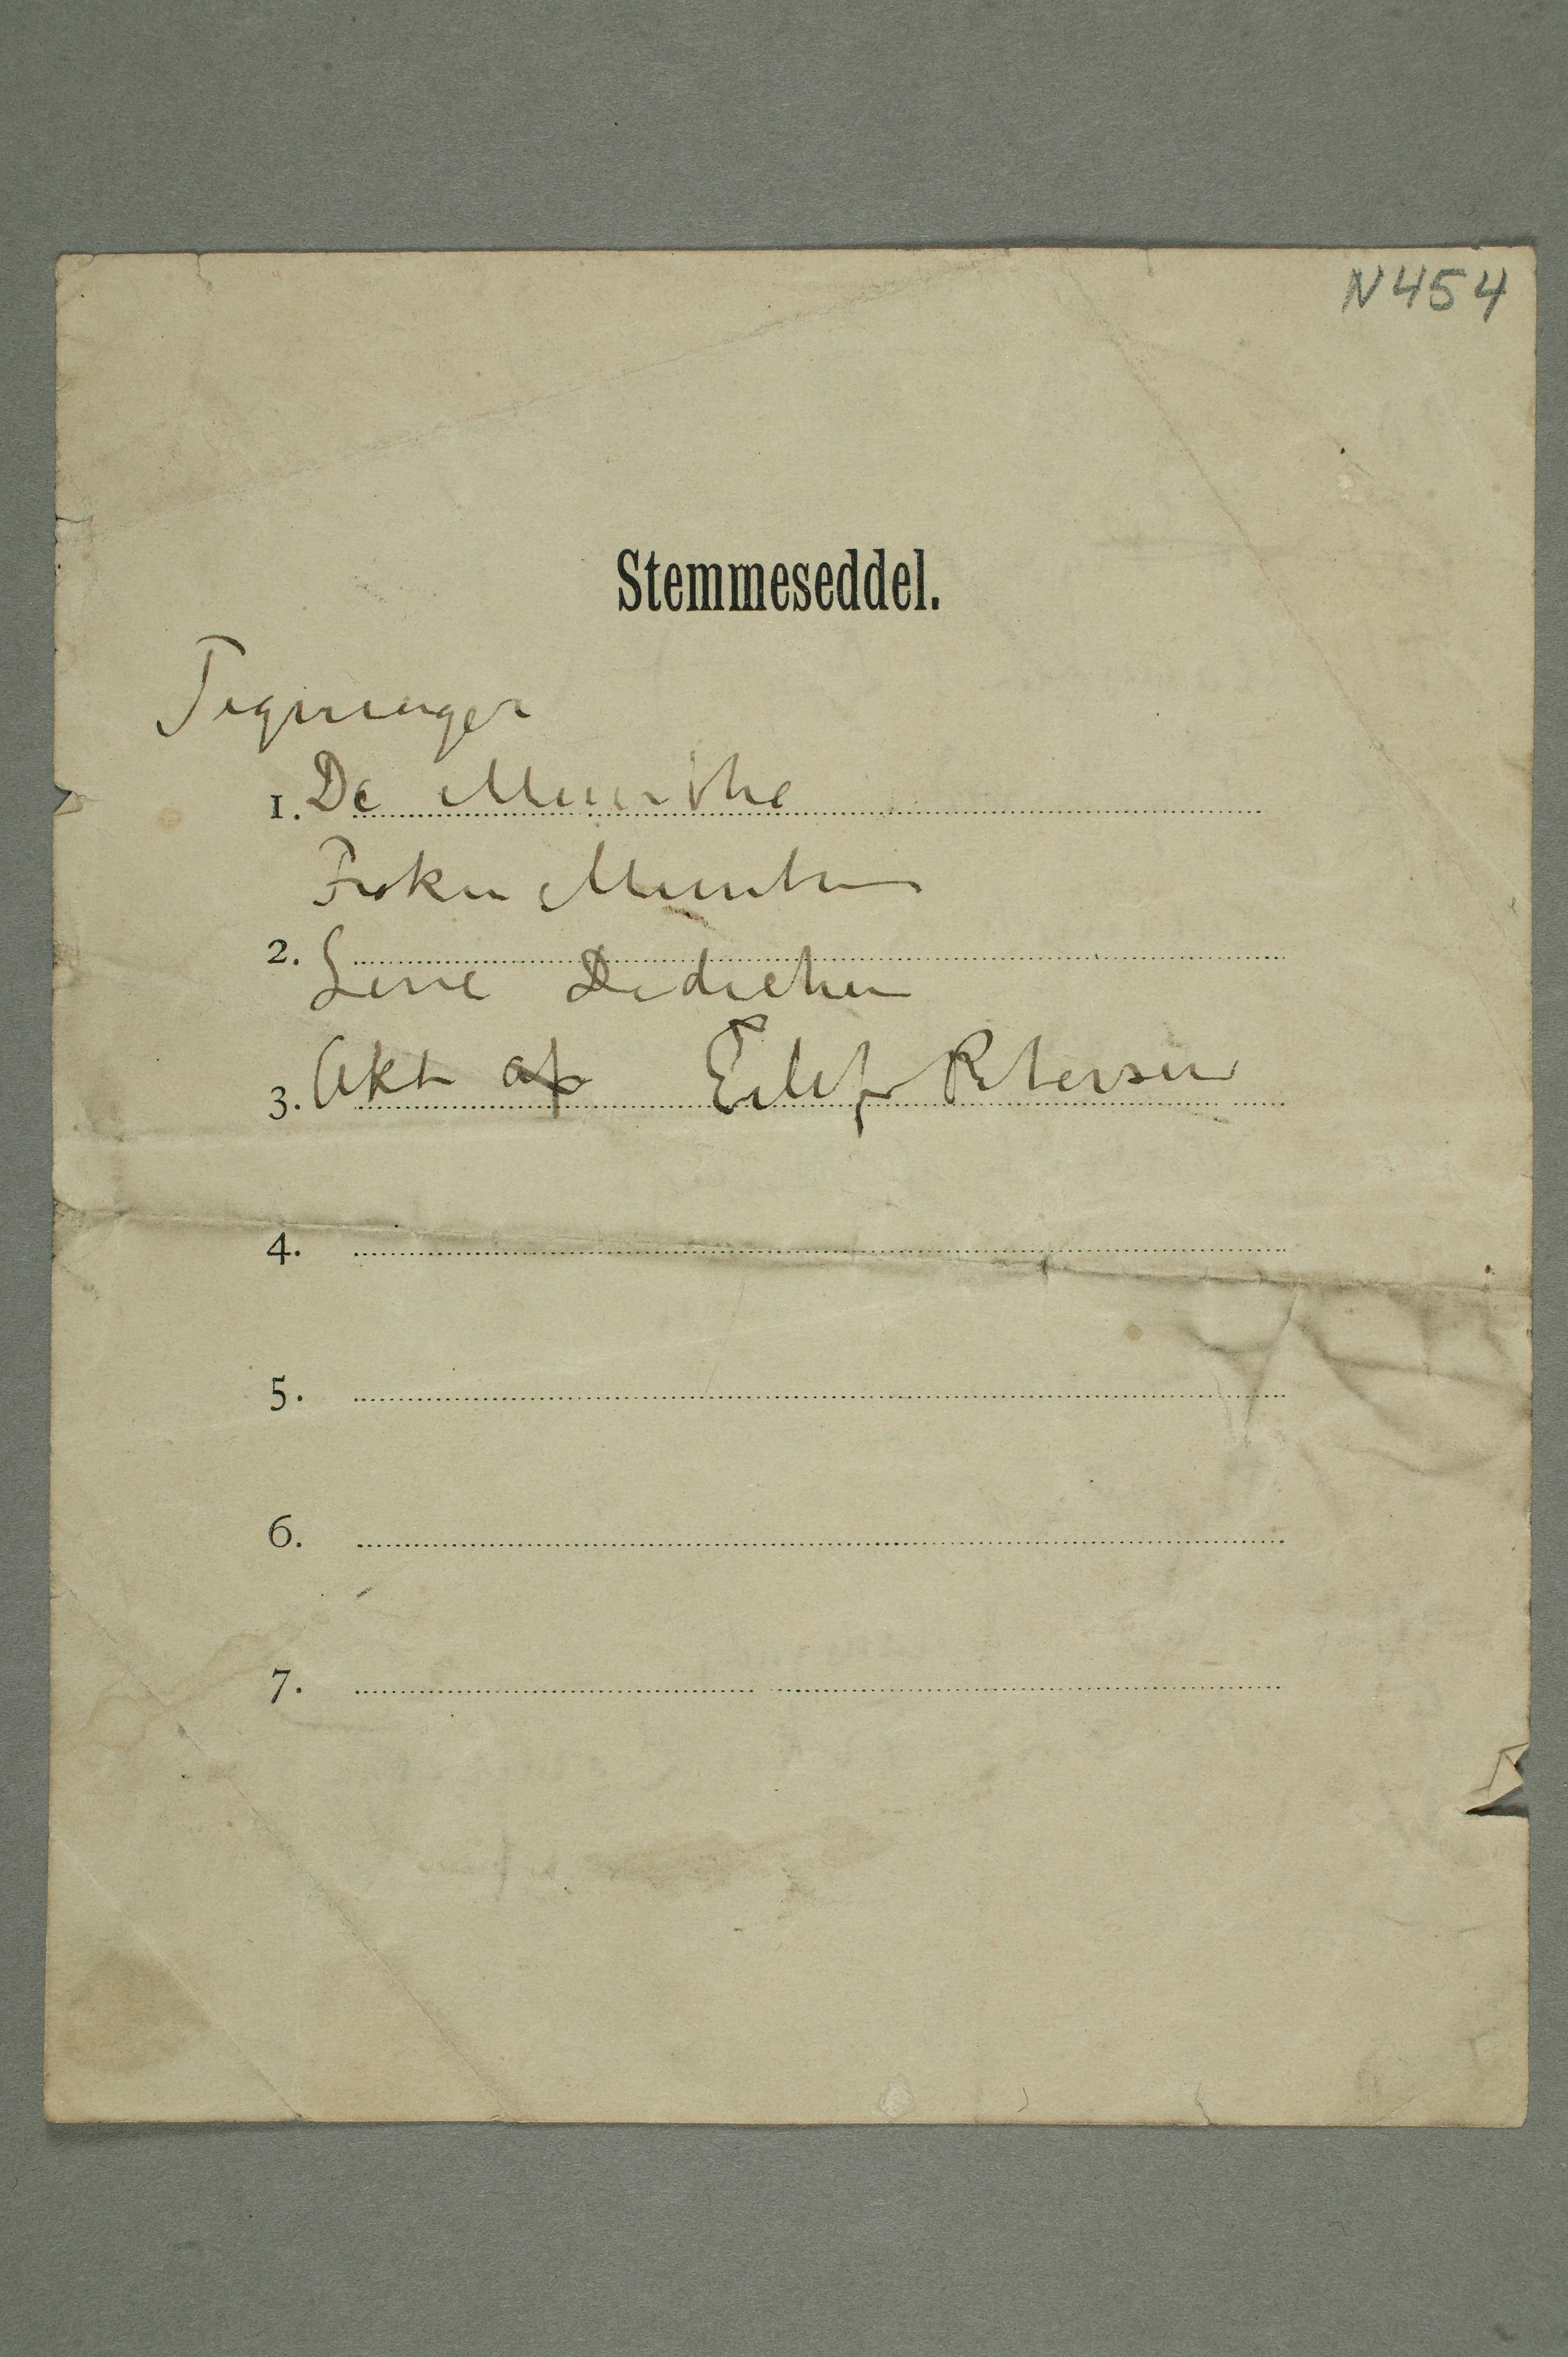 N454
Stemmeseddel.
Tegninger
1. De Munthe
Frøken Munthe
2.
Lene Didrichen
3. Akt af Eilif Petersen
4.
5.
6.
7.